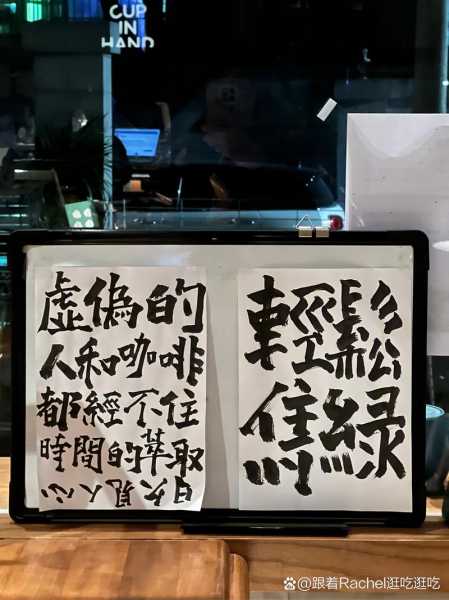 CUP
IN
HAND
虛偽的
人和咖啡
都經不住
時間的萃取
日久見人心
輕鬆
焦綠
@跟着Rachel逛吃逛吃